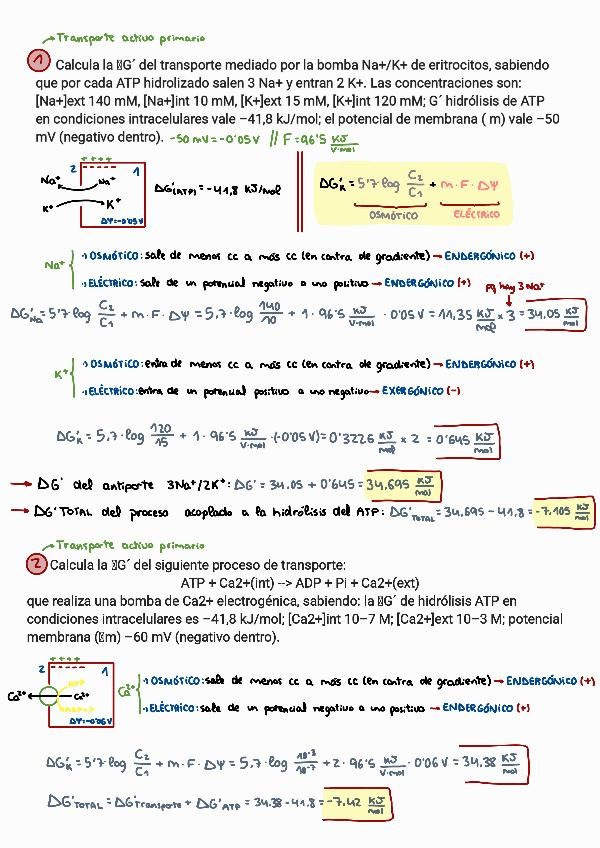 → Transporte activo primario
1 Calcula la ▯G´ del transporte mediado por la bomba Na+/K+ de eritrocitos, sabiendo
que por cada ATP hidrolizado salen 3 Na+ y entran 2 K+. Las concentraciones son:
[Na+]ext 140 mM, [Na+]int 10 mM, [K+]ext 15 mM, [K+]int 120 mM; G´ hidrólisis de ATP
en condiciones intracelulares vale –41,8 kJ/mol; el potencial de membrana ( m) vale –50
mV (negativo dentro). -50 mV = -0'05 V // F = 96'5 KJ/V·mol
++++
2 ---- 1
Na⁺ Na⁺
K⁺ K⁺
ΔΨ=-0'05V
ΔG'(ATP) = -41,8 KJ/mol
ΔG'K = 5'7 log C2/C1 + m·F·ΔΨ
OSMÓTICO ELÉCTRICO
Na⁺
OSMÓTICO: sale de menos cc a más cc (en contra de gradiente) → ENDERGÓNICO (+)
ELÉCTRICO: sale de un potencial negativo a uno positivo → ENDERGÓNICO (+) pq hay 3 Na⁺
ΔG'Na = 5'7 log C2/C1 + m·F·ΔΨ = 5,7·log 140/10 + 1·96'5 KJ/V·mol · 0'05 V = 11,35 KJ/mol x 3 = 34,05 KJ/mol
K⁺
OSMÓTICO: entra de menos cc a más cc (en contra de gradiente) → ENDERGÓNICO (+)
ELÉCTRICO: entra de un potencial positivo a uno negativo → EXERGÓNICO (-)
ΔG'K = 5,7·log 120/15 + 1·96'5 KJ/V·mol ·(-0'05 V) = 0'3226 KJ/mol x 2 = 0'645 KJ/mol
→ ΔG' del antiporte 3Na⁺/2K⁺: ΔG' = 34.05 + 0'645 = 34.695 KJ/mol
→ ΔG' TOTAL del proceso acoplado a la hidrólisis del ATP: ΔG'TOTAL = 34,695 - 41,8 = -7.105 KJ/mol
→ Transporte activo primario
2 Calcula la ▯G´ del siguiente proceso de transporte:
ATP + Ca2+(int) --> ADP + Pi + Ca2+(ext)
que realiza una bomba de Ca2+ electrogénica, sabiendo: la ▯G´ de hidrólisis ATP en
condiciones intracelulares es –41,8 kJ/mol; [Ca2+]int 10–7 M; [Ca2+]ext 10–3 M; potencial
membrana (▯m) –60 mV (negativo dentro).
++++
2 ---- 1
ATP
Ca²⁺ Ca²⁺
ΔΨ=-0'06V
Ca²⁺
OSMÓTICO: sale de menos cc a más cc (en contra de gradiente) → ENDERGÓNICO (+)
ELÉCTRICO: sale de un potencial negativo a uno positivo → ENDERGÓNICO (+)
ΔG'K = 5'7 log C2/C1 + m·F·ΔΨ = 5,7·log 10⁻³/10⁻⁷ + 2·96'5 KJ/V·mol · 0'06 V = 34,38 KJ/mol
ΔG'TOTAL = ΔG'Transporte + ΔG'ATP = 34.38 - 41.8 = -7.42 KJ/mol